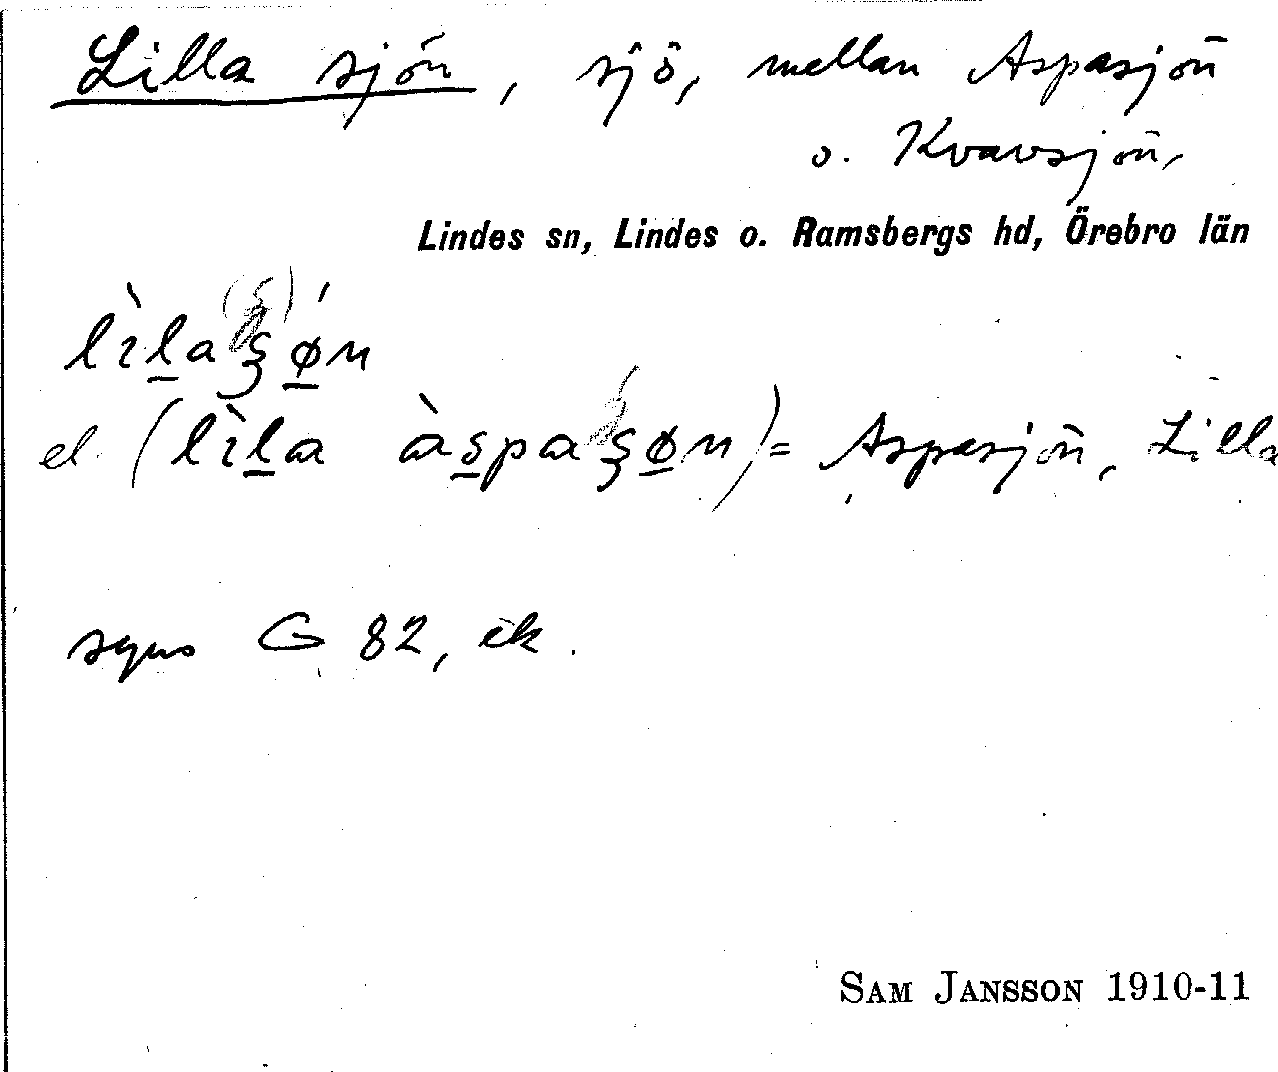 Lilla sjön, sjö, mellan Aspasjön
o. Kvavsjön,
Lindes sn, Lindes o. Ramsbergs hd, Örebro län
lìla(ʂ)ʂǿn
el. (lìla àspaʂøn) = Aspasjön, Lilla
syns G 82, ek.
SAM JANSSON 1910-11